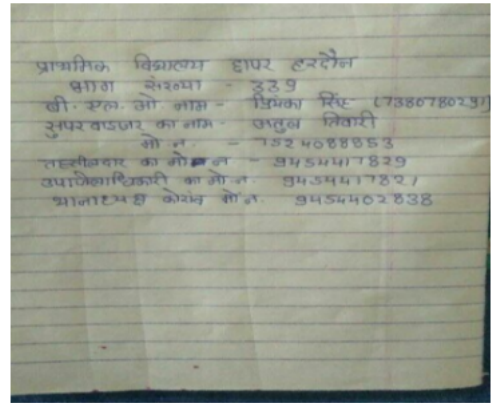 प्राथमिक विद्यालय छापर हरदौन
भाग संख्या - 339
बी. एल. ओ. नाम - प्रियंका सिंह (7380780291)
सुपरवाइजर का नाम - अतुल तिवारी
मो. न. - 7524088853
तहसीलदार का मो न - 9454417829
उपजिलाधिकारी का मो. न. 9454417821
थानाध्यक्ष कोरांव मो. न. 9454402838